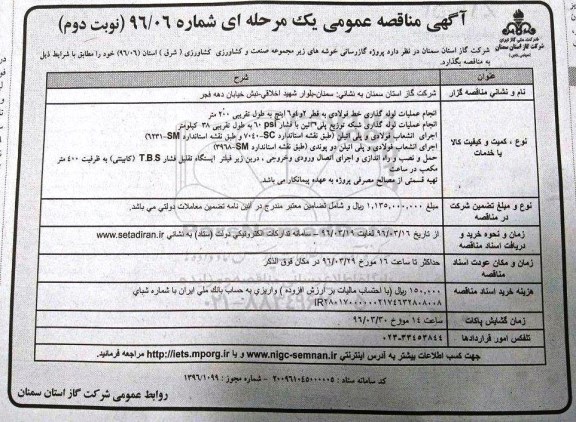 آگهی مناقصه عمومی یک مرحله ای شماره ۹۶/۰۶ (نوبت دوم)
شرکت ملی گاز ایران
شرکت گاز استان سمنان
شرکت گاز استان سمنان در نظر دارد پروژه گازرسانی خوشه های زیر مجموعه صنعت و کشاورزی کشاورزی ( شرق ) استان (۹۶/۰۶) خود را مطابق با شرایط ذیل
به مناقصه بگذارد.
عنوان
شرح
نام و نشانی مناقصه گزار
شرکت گاز استان سمنان به نشانی: سمنان-بلوار شهید اخلاقی-نبش خیابان دهه فجر
نوع ، کمیت و کیفیت کالا
یا خدمات
انجام عملیات لوله گذاری خط فولادی به قطر ۲و۴و۶ اینچ به طول تقریبی ۲۰۰ متر
انجام عملیات لوله گذاری شبکه توزیع پلی اتیلن با فشار ۶۰ psi به طول تقریبی ۳۸ کیلومتر
اجرای انشعاب فولادی و پلی اتیلن (طبق نقشه استاندارد ۷۰۴۰-SC و طبق نقشه استاندارد ۶۲۳۱-SM)
اجرای انشعاب فولادی و پلی اتیلن دو پوندی (طبق نقشه ۳۹۶۸-SM)
حمل و نصب و راه اندازی و اجرای اتصال ورودی وخروجی ، درین زیر فیلتر ایستگاه تقلیل فشار T.B.S (کابینتی) به ظرفیت ۴۰۰ متر
مکعب در ساعت
تهیه قسمتی از مصالح مصرفی پروژه به عهده پیمانکار می باشد.
نوع و مبلغ تضمین شرکت
در مناقصه
مبلغ ۱,۱۳۵,۰۰۰,۰۰۰ ریال و شامل تضامین معتبر مندرج در آئین نامه تضمین معاملات دولتی می باشد.
زمان و نحوه خرید و
دریافت اسناد مناقصه
از تاریخ ۹۶/۰۳/۱۶ لغایت ۹۶/۰۳/۱۹ – سامانه تدارکات الکترونیکی دولت (ستاد) به نشانی www.setadiran.ir
زمان و مکان عودت اسناد
مناقصه
حداکثر تا ساعت ۱۶ مورخ ۹۶/۰۳/۲۹ در مکان فوق الذکر
هزینه خرید اسناد مناقصه
۱۵۰,۰۰۰ ریال (با احتساب مالیات بر ارزش افزوده ) واریزی به حساب بانک ملی ایران با شماره شبای
زمان گشایش پاکات
ساعت ۱۴ مورخ ۹۶/۰۳/۳۰
تلفکس امور قراردادها
۰۲۳-۳۳۴۵۳۸۴۴
جهت کسب اطلاعات بیشتر به آدرس اینترنتی www.nigc-semnan.ir و یا http://iets.mporg.ir مراجعه فرمائید.
کد سامانه ستاد : ۲۰۰۹۶۱۰۴۵۰۰۰۰۰۵ - شماره مجوز : ۱۳۹۶/۱۰۹۹
روابط عمومی شرکت گاز استان سمنان